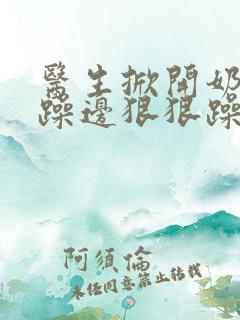 醫生掀開奶
躁邊狠狠躁
阿須倫
未经同意禁止转载